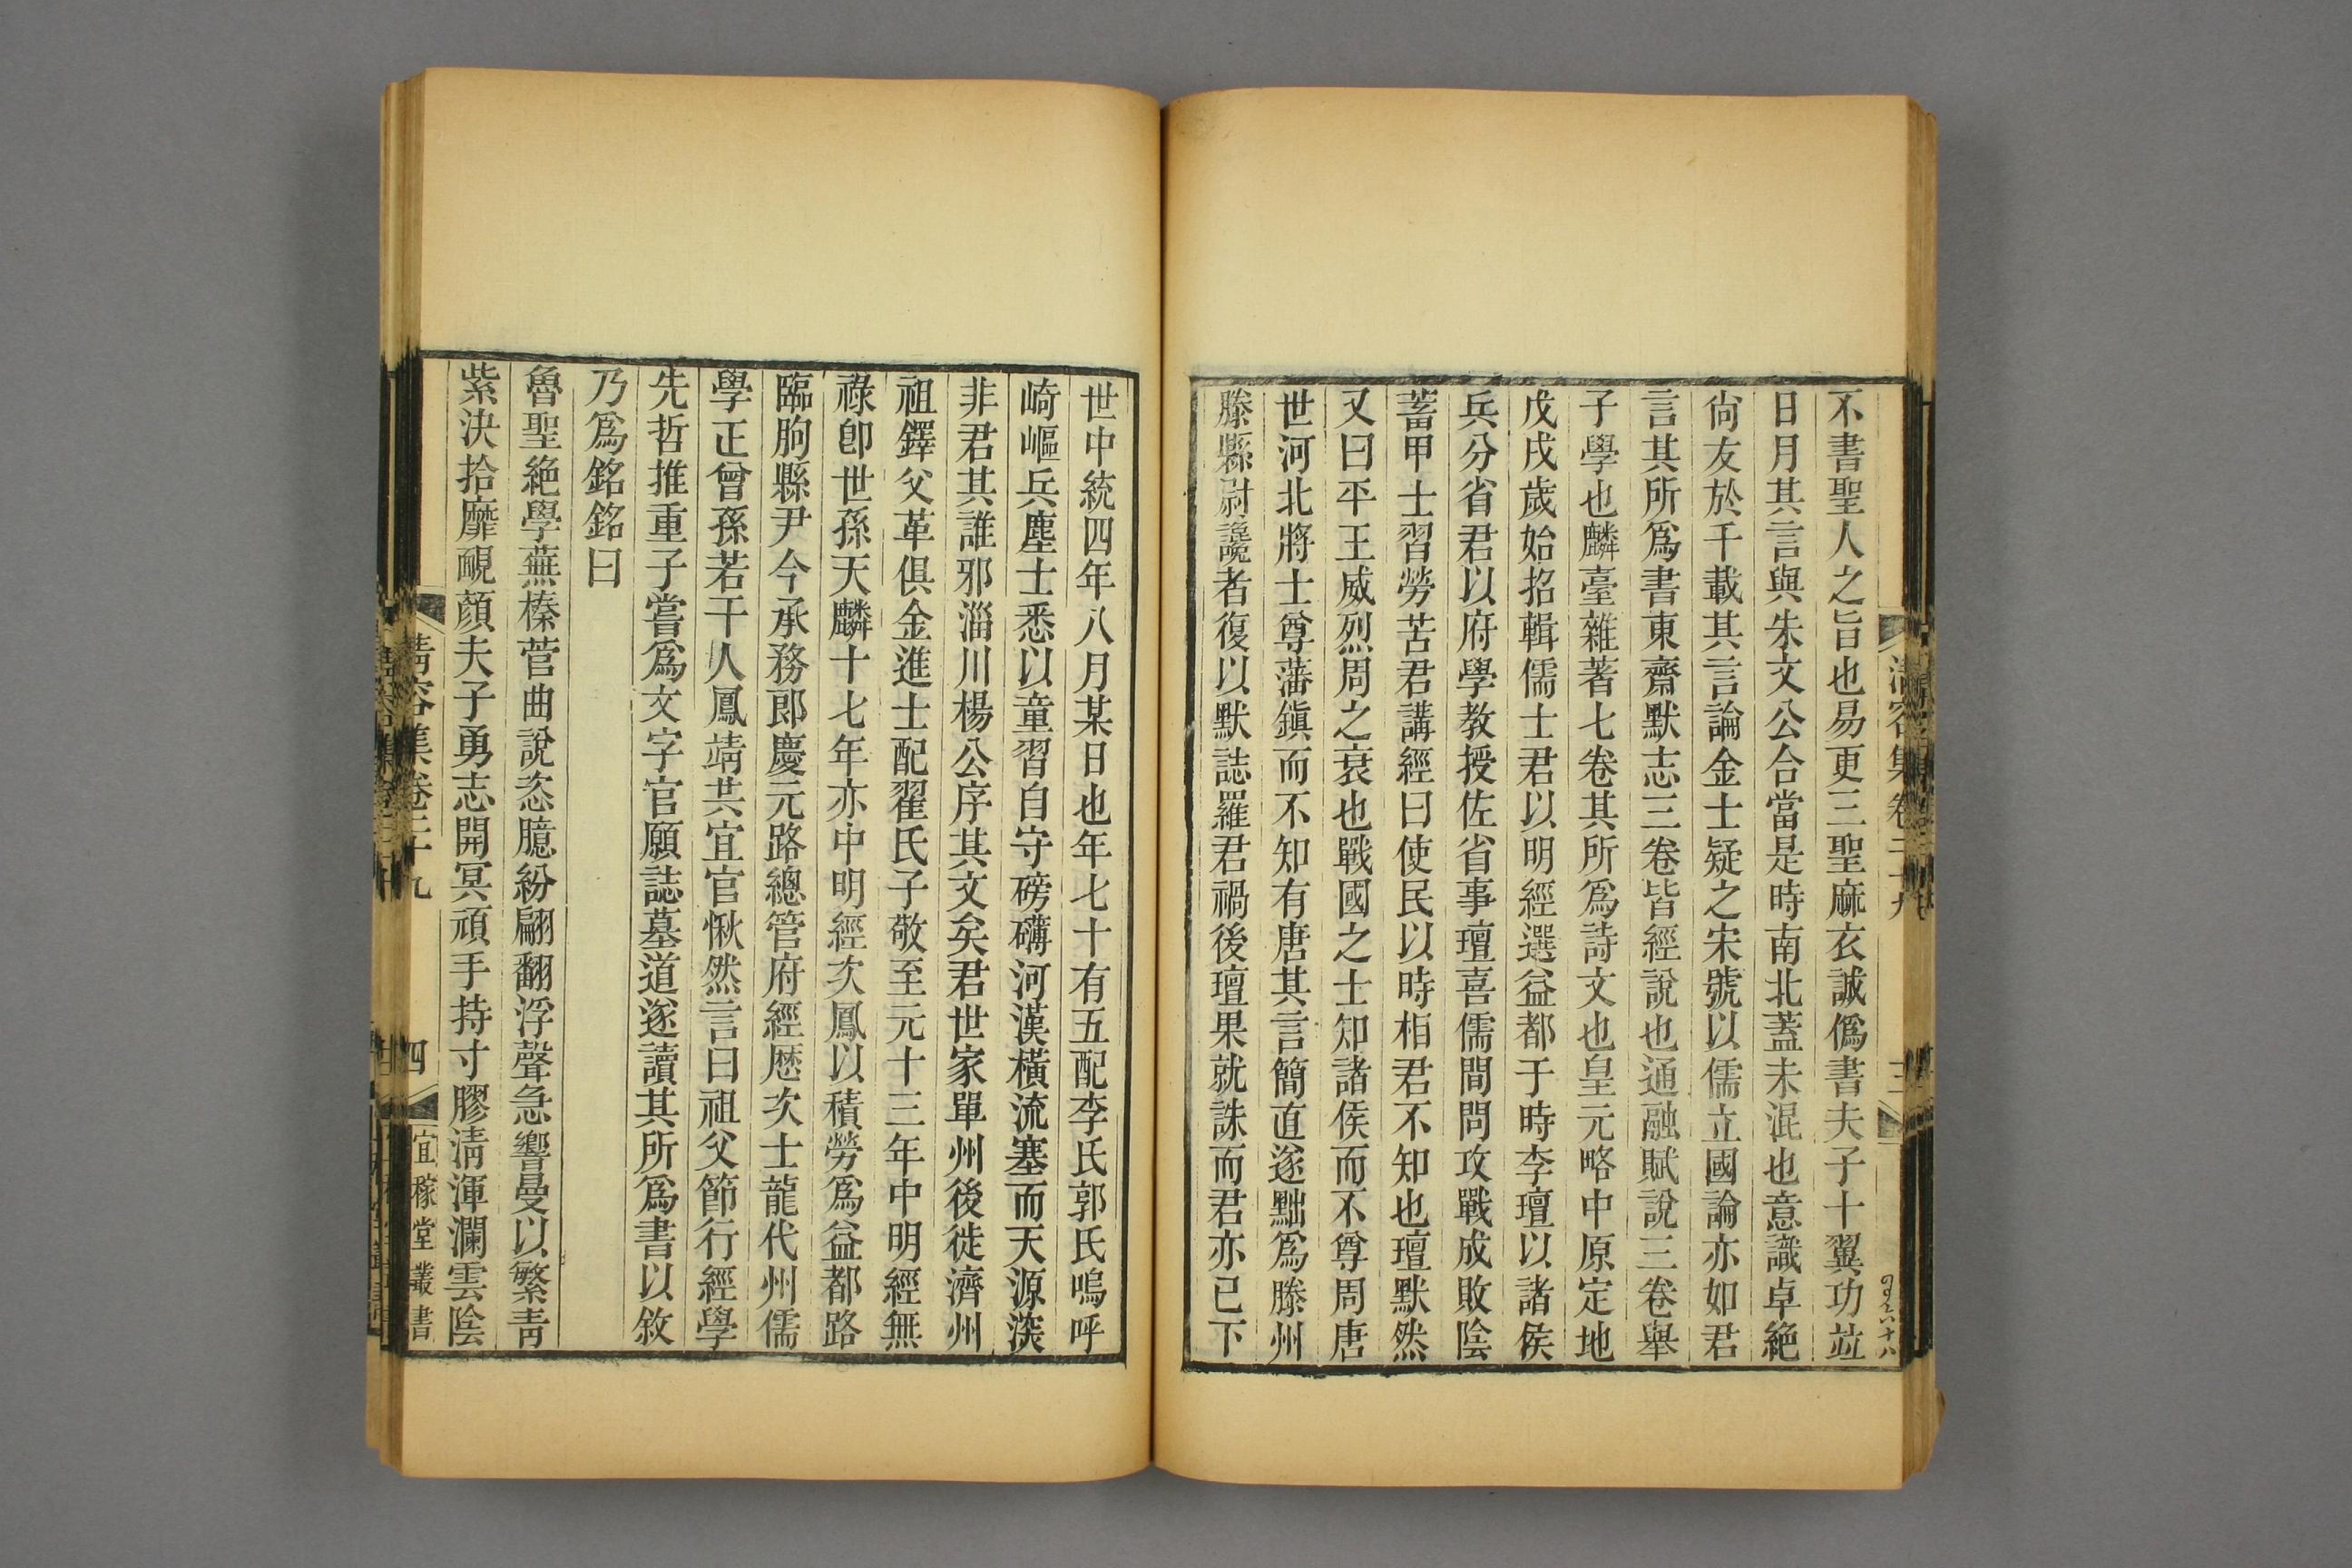 不書聖人之旨也易更三聖麻衣誠僞書夫子十翼功竝
日月其言與朱文公合當是時南北蓋未混也意識卓絶
尙友於千載其言論金士疑之宋號以儒立國論亦如君
言其所爲書東齋默志三卷皆經說也通融賦說三卷舉
子學也麟臺雜著七卷其所爲詩文也皇元略中原定地
戊戌歲始招輯儒士君以明經選益都于時李璮以諸侯
兵分省君以府學教授佐省事璮喜儒間問攻戰成敗陰
蓄甲士習勞苦君講經曰使民以時柏君不知也璮默然
又曰平王威烈周之衰也戰國之士知諸侯而不尊周唐
世河北將士尊藩鎭而不知有唐其言簡直遂黜爲滕州
滕縣尉讒者復以默誌羅君禍後璮果就誅而君亦已下
世中統四年八月某日也年七十有五配李氏郭氏嗚呼
崎嶇兵塵士悉以童習自守磅礴河漢橫流塞而天源深
非君其誰邪淄川楊公序其文矣君世家單州後徙濟州
祖鐸父革俱金進士配翟氏子敬至元十三年中明經無
祿卽世孫天麟十七年亦中明經次鳳以積勞爲益都路
臨朐縣尹今承務郎慶元路總管府經歷次士龍代州儒
學正曾孫若干人鳳靖共宜官愀然言曰祖父節行經學
先哲推重子嘗爲文字官願誌墓道遂讀其所爲書以敘
乃爲銘銘曰
魯聖絶學蕪榛菅曲說恣臆紛翩翻浮聲急響曼以繁靑
紫決拾靡靦顏夫子勇志開冥頑手持寸膠淸渾瀾雲陰
淸容集卷二十九
四
宜稼堂叢書